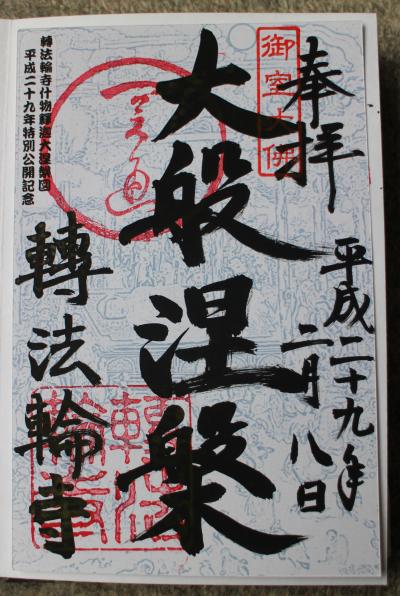 奉拝
御室大佛
平成二十九年
二月八日
大般涅槃
轉法輪寺
轉法輪寺什物釋迦大涅槃図
平成二十九年特別公開記念
轉法輪寺